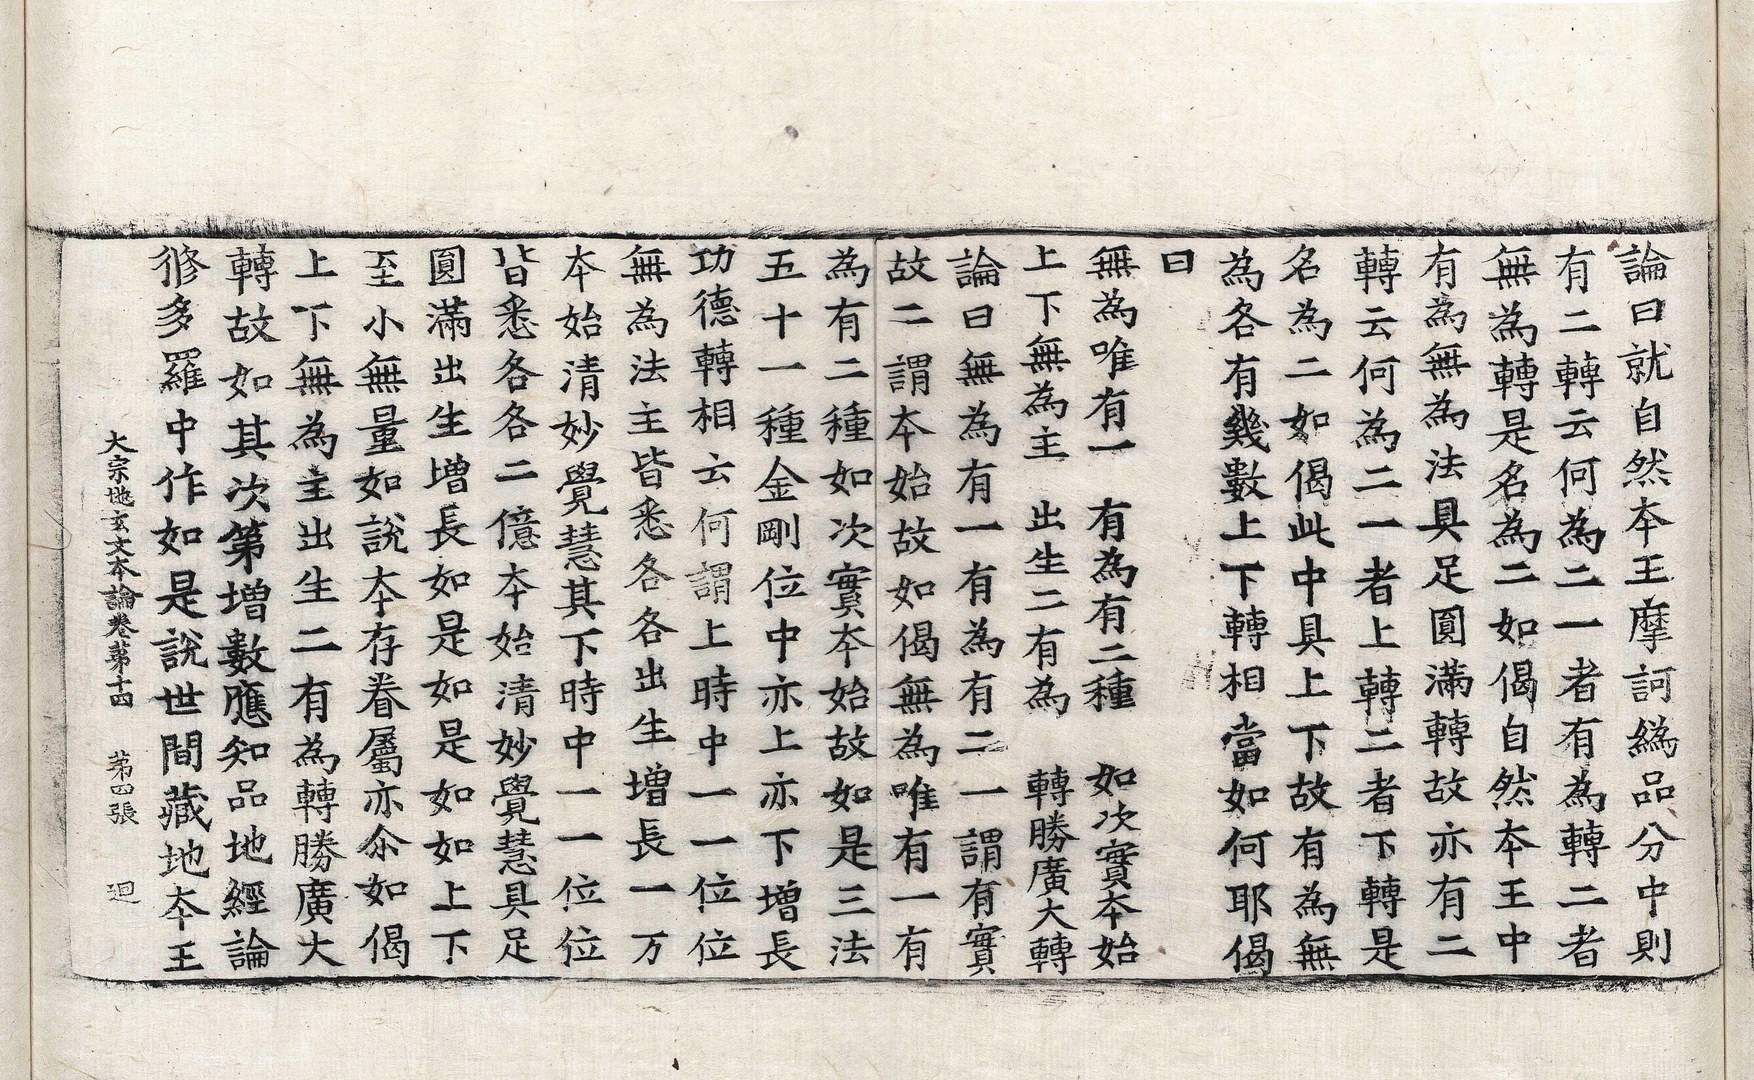 論曰就自然本王摩訶䌫品分中則
有二轉云何為二一者有為轉二者
無為轉是名為二如偈自然本王中
有為無為法具足圓滿轉故亦有二
轉云何為二一者上轉二者下轉是
名為二如偈此中具上下故有為無
為各有幾數上下轉相當如何耶偈
曰
無為唯有一　有為有二種　如次實本始
上下無為主　出生二有為　轉勝廣大轉
論曰無為有一有為有二一謂有實
故二謂本始故如偈無為唯有一有
為有二種如次實本始故如是三法
五十一種金剛位中亦上亦下增長
功德轉相云何謂上時中一一位位
無為法主皆悉各各出生增長一万
本始清妙覺慧其下時中一一位位
皆悉各各二億本始清妙覺慧具足
圓滿出生增長如是如是如如上下
至小無量如說本存眷屬亦尒如偈
上下無為主出生二有為轉勝廣大
轉故如其次第增數應知品地經論
修多羅中作如是說世間藏地本王
大宗地玄文本論卷第十四　第四張　迴